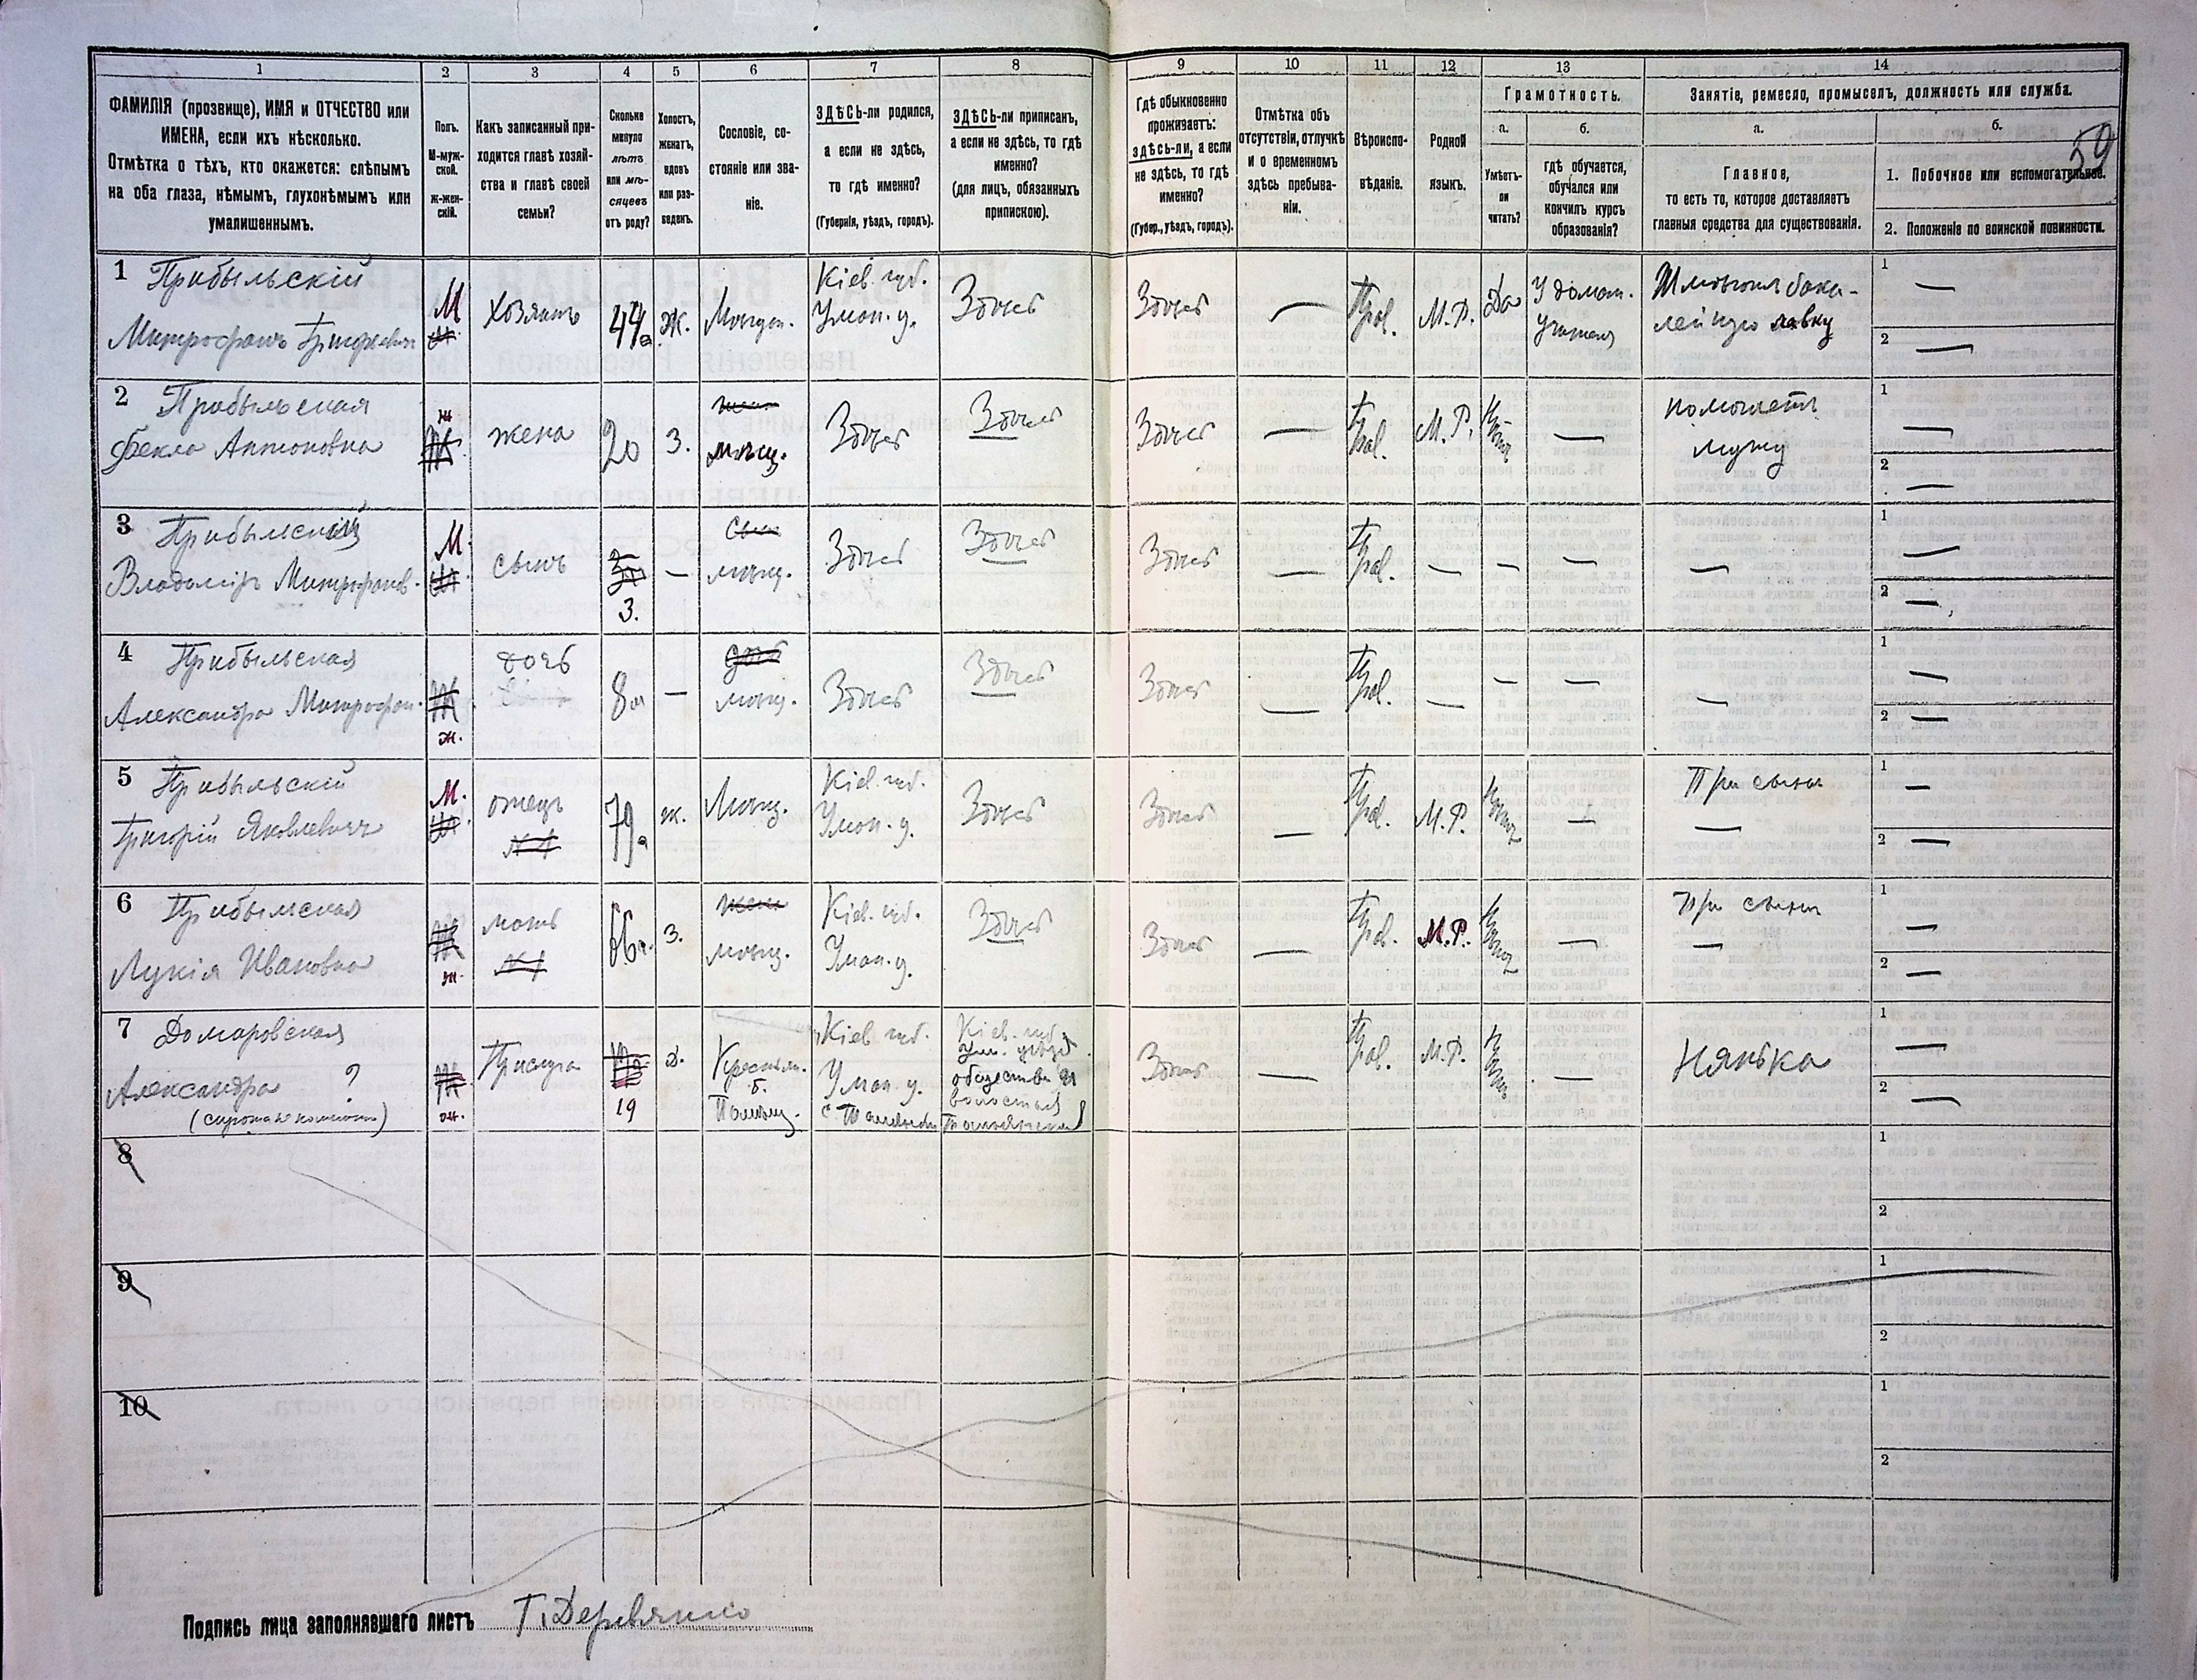 1 2 3 4 5 6 7 8 9 10 11 12 13 14
ФАМИЛІЯ (прозвище), ИМЯ и ОТЧЕСТВО или
ИМЕНА, если ихъ нѣсколько.
Отмѣтка о тѣхъ, кто окажется: слѣпымъ
на оба глаза, нѣмымъ, глухонѣмымъ или
умалишеннымъ.
Полъ.
М-муж-
ской.
ж-жен-
скій.
Какъ записанный при-
ходится главѣ хозяй-
ства и главѣ своей
семьи?
Сколько
минуло
лѣтъ
или мѣ-
сяцевъ
отъ роду?
Холостъ,
женатъ,
вдовъ
или раз-
веденъ.
Сословіе, со-
стояніе или зва-
ніе.
ЗДѢСЬ-ли родился,
а если не здѣсь,
то гдѣ именно?
(Губернія, уѣздъ, городъ).
ЗДѢСЬ-ли приписанъ,
а если не здѣсь, то гдѣ
именно?
(для лицъ, обязанныхъ
припискою).
Гдѣ обыкновенно
проживаетъ:
здѣсь-ли, а если
не здѣсь, то гдѣ
именно?
(Губер., уѣздъ, городъ).
Отмѣтка объ
отсутствіи, отлучкѣ
и о временномъ
здѣсь пребыва-
ніи.
Вѣроиспо-
вѣданіе.
Родной
языкъ.
Грамотность.
а.
Умѣетъ-
ли
читать?
б.
гдѣ обучается,
обучался или
кончилъ курсъ
образованія?
Занятіе, ремесло, промыселъ, должность или служба.
а.
Главное,
то есть то, которое доставляетъ
главныя средства для существованія.
б.
59
1. Побочное или вспомогательное.
2. Положеніе по воинской повинности.
1 Прибыльскій
Митрофанъ Григорьевичъ
М
Хозяинъ
44
Ж.
Мѣщан.
Кіев. губ.
Уман. у.
Здѣсь
Здѣсь
—
Прав.
М.Р.
Да
У домаш.
учителя
бака-
лейную лавку
1 —
2 —
2 Прибыльская
Фекла Антоновна
ж
жена
20
З.
мѣщ.
Здѣсь
Здѣсь
Здѣсь
—
Прав.
М.Р.
Нѣтъ
—
помогаетъ
мужу
1 —
2 —
3 Прибыльскій
Владиміръ Митрофанов.
М.
сынъ
3.
—
Сын
мѣщ.
Здѣсь
Здѣсь
Здѣсь
—
Прав.
—
—
—
—
1 —
2 —
4 Прибыльская
Александра Митрофан.
ж.
дочь
8м
—
мѣщ.
Здѣсь
Здѣсь
Здѣсь
—
Прав.
—
—
—
—
1 —
2 —
5 Прибыльскій
Григорій Яковлевичъ
М.
отецъ
№ 1
79
ж.
Мѣщ.
Кіев. губ.
Уман. у.
Здѣсь
Здѣсь
—
Прав.
М.Р.
Нѣтъ
—
При сынѣ
—
1 —
2 —
6 Прибыльская
Лукія Ивановна
ж.
мать
№ 1
66
З.
мѣщ.
Кіев. губ.
Уман. у.
Здѣсь
Здѣсь
—
Прав.
М.Р.
Нѣтъ
—
При сынѣ
—
1 —
2 —
7 Домаровская
Александра ?
ж.
Прислуга
19
д.
Крестьян.
б.
Помѣщ.
Кіев. губ.
Уман. у.
Кіев. губ.
Ум. уѣзд.
общества и
волости
Здѣсь
—
Прав.
М.Р.
Нѣтъ
—
Нянька
1 —
2 —
8
1
2
9
1
2
10
1
2
Подпись лица заполнявшаго листъ Г. Деревянко